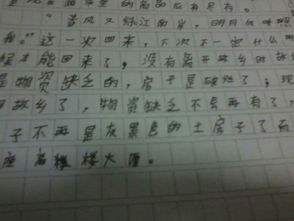 春风又绿江南岸，明月何时照
我。"这一次回来，下次不一定什么
才能回来了，没有离开故乡时故
是物资缺乏的，房子是破烂了；现
故乡了，物资缺乏不是再有了，
子不再是灰黑色的土房子了而
座高楼大厦。